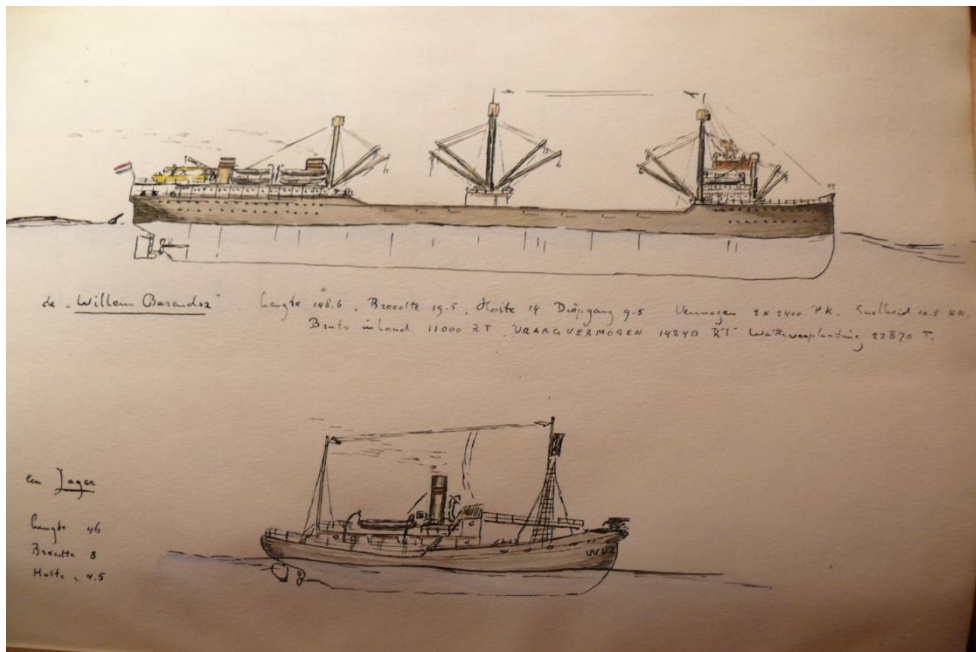 de "Willem Barendsz" Lengte 146.6, Breedte 19.5, Holte 14 Diepgang 9.5 Vermogen 2 x 2400 P.K. Snelheid 10.5 KN.
Bruto inhoud 11000 RT. DRAAGVERMOGEN 14240 RT Waterverplaatsing 22870 T.
een Jager
Lengte 46
Breedte 8
Holte 4.5